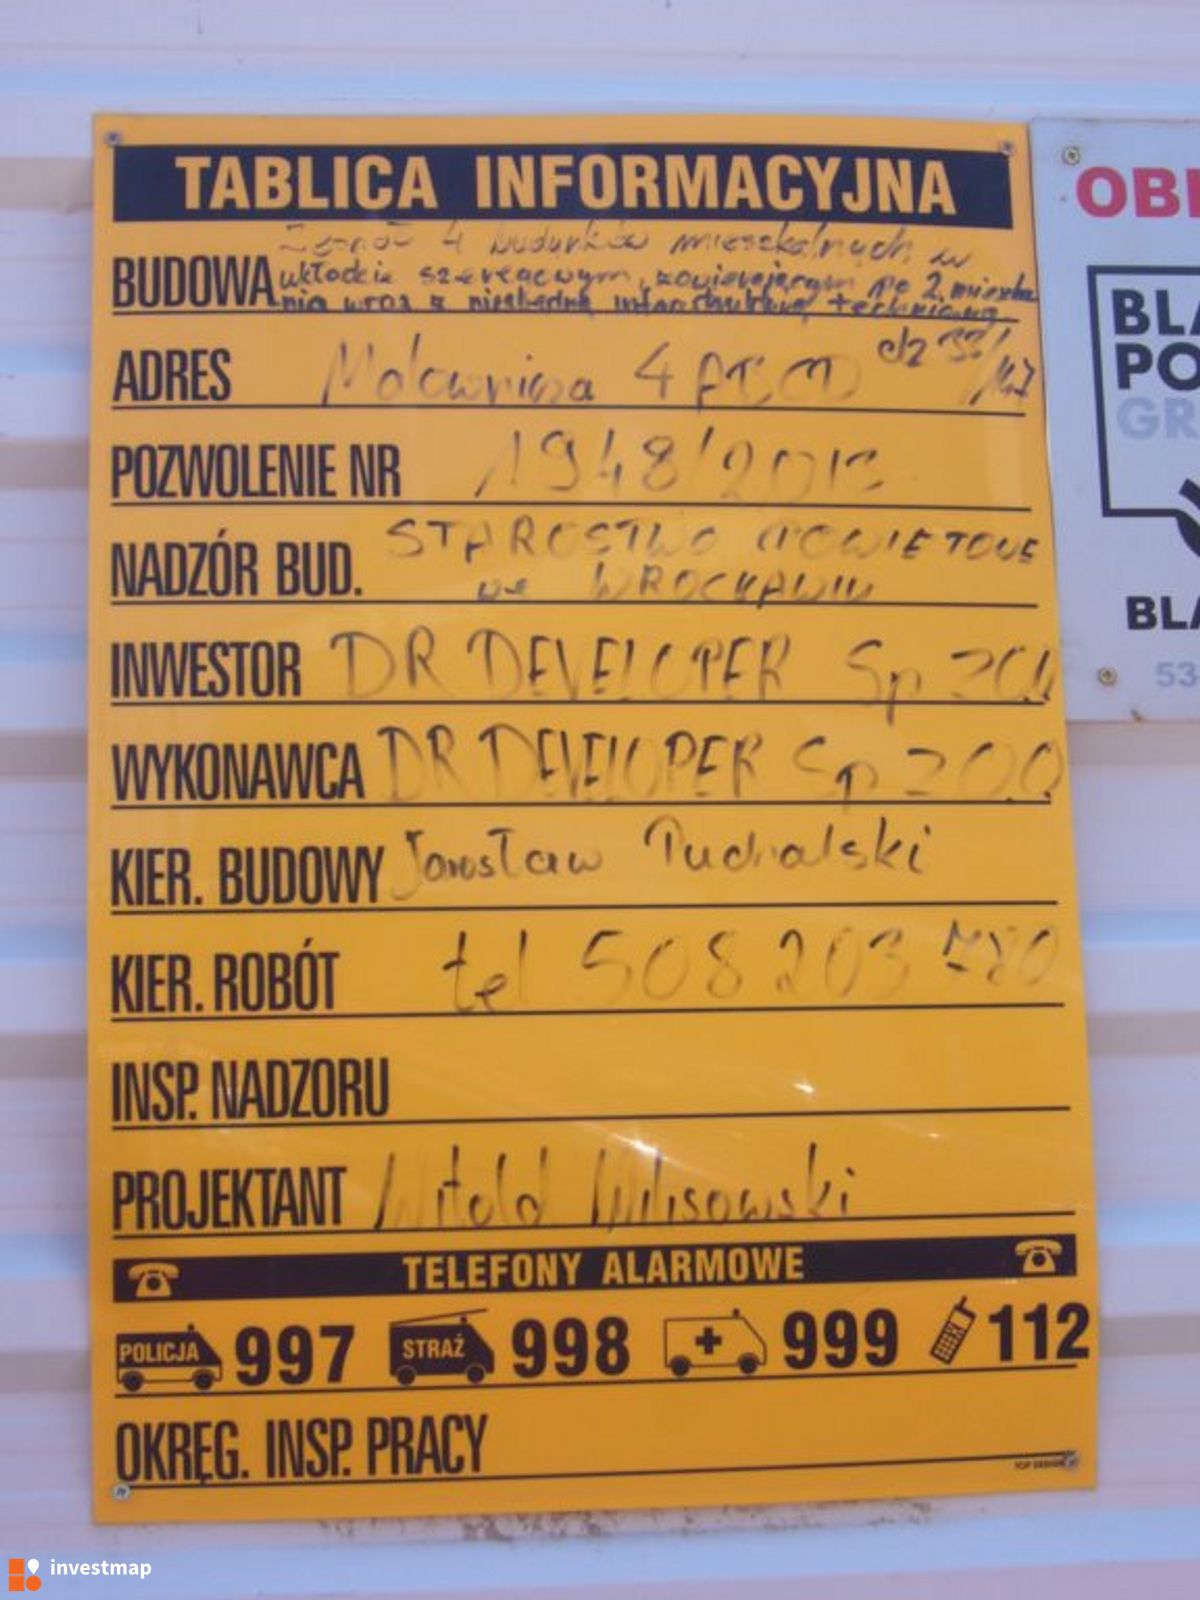 TABLICA INFORMACYJNA
Zespół 4 budynków mieszkalnych w
BUDOWA układzie szeregowym, zawierającym po 2 mieszka
nia wraz z niezbędną infrastrukturą techniczną
ADRES Malownicza 4 ABCD dz 33/
147
POZWOLENIE NR 1948/2013
NADZÓR BUD. STAROSTWO POWIATOWE
we WROCŁAWIU
INWESTOR DR DEVELOPER Sp z o.o
WYKONAWCA DR DEVELOPER Sp z o.o
KIER. BUDOWY Jarosław Puchalski
KIER. ROBÓT tel 508 203 780
INSP. NADZORU
PROJEKTANT Witold
TELEFONY ALARMOWE
POLICJA 997 STRAŻ 998 999 112
OKRĘG. INSP. PRACY
TOP DESIGN
OBI
BLA
PO
GR
BLA
53-
investmap